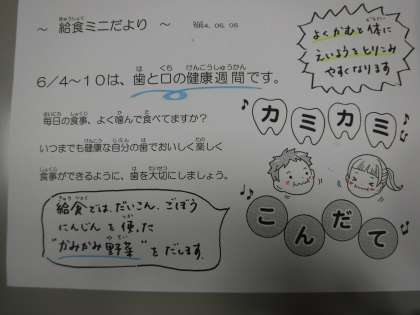 ～ 給食ミニだより ～
2024. 06. 06
よくかむと体に
えいようをとりこみ
やすくなります
6/4～10は、歯と口の健康週間です。
毎日の食事、よく噛んで食べてますか？
いつまでも健康な自分の歯でおいしく楽しく
食事ができるように、歯を大切にしましょう。
カミカミ
こんだて
給食では、だいこん、ごぼう
にんじんを使った
"かみかみ野菜"をだします。